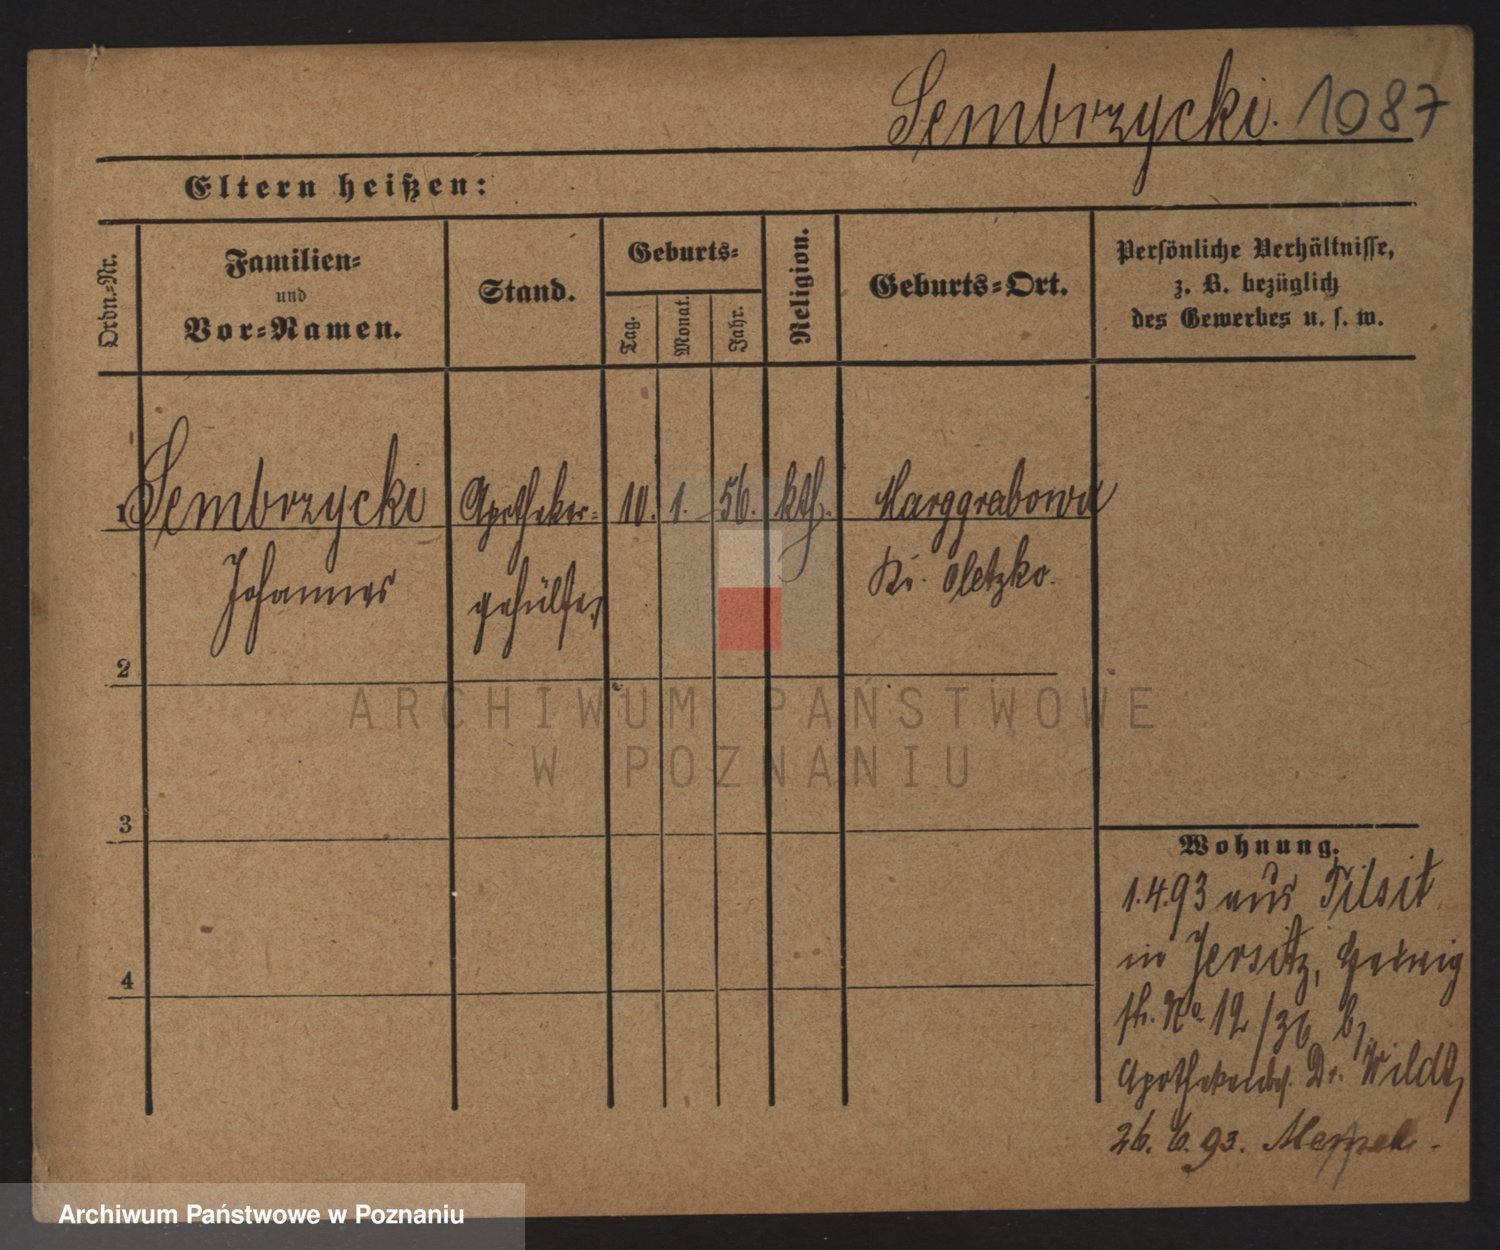 Sembrzycki. 1087
Eltern heißen:
Ordn.-Nr.
Familien-
und
Vor-Namen.
Stand.
Geburts-
Tag.
Monat.
Jahr.
Religion.
Geburts-Ort.
Persönliche Verhältnisse,
z. B. bezüglich
des Gewerbes u. s. w.
1 Sembrzycki Apotheker- 10. 1. 56. kth. Marggrabowa
Johannes gehülfe Kr. Oletzko.
2
ARCHIWUM PAŃSTWOWE
W POZNANIU
3
4
Wohnung.
1.4.93 aus Tilsit
in Jersitz, Hedwig
str. No 12/36 b/
Apothekenbes. Dr. Wildt,
26. 6. 93. Memel.
Archiwum Państwowe w Poznaniu